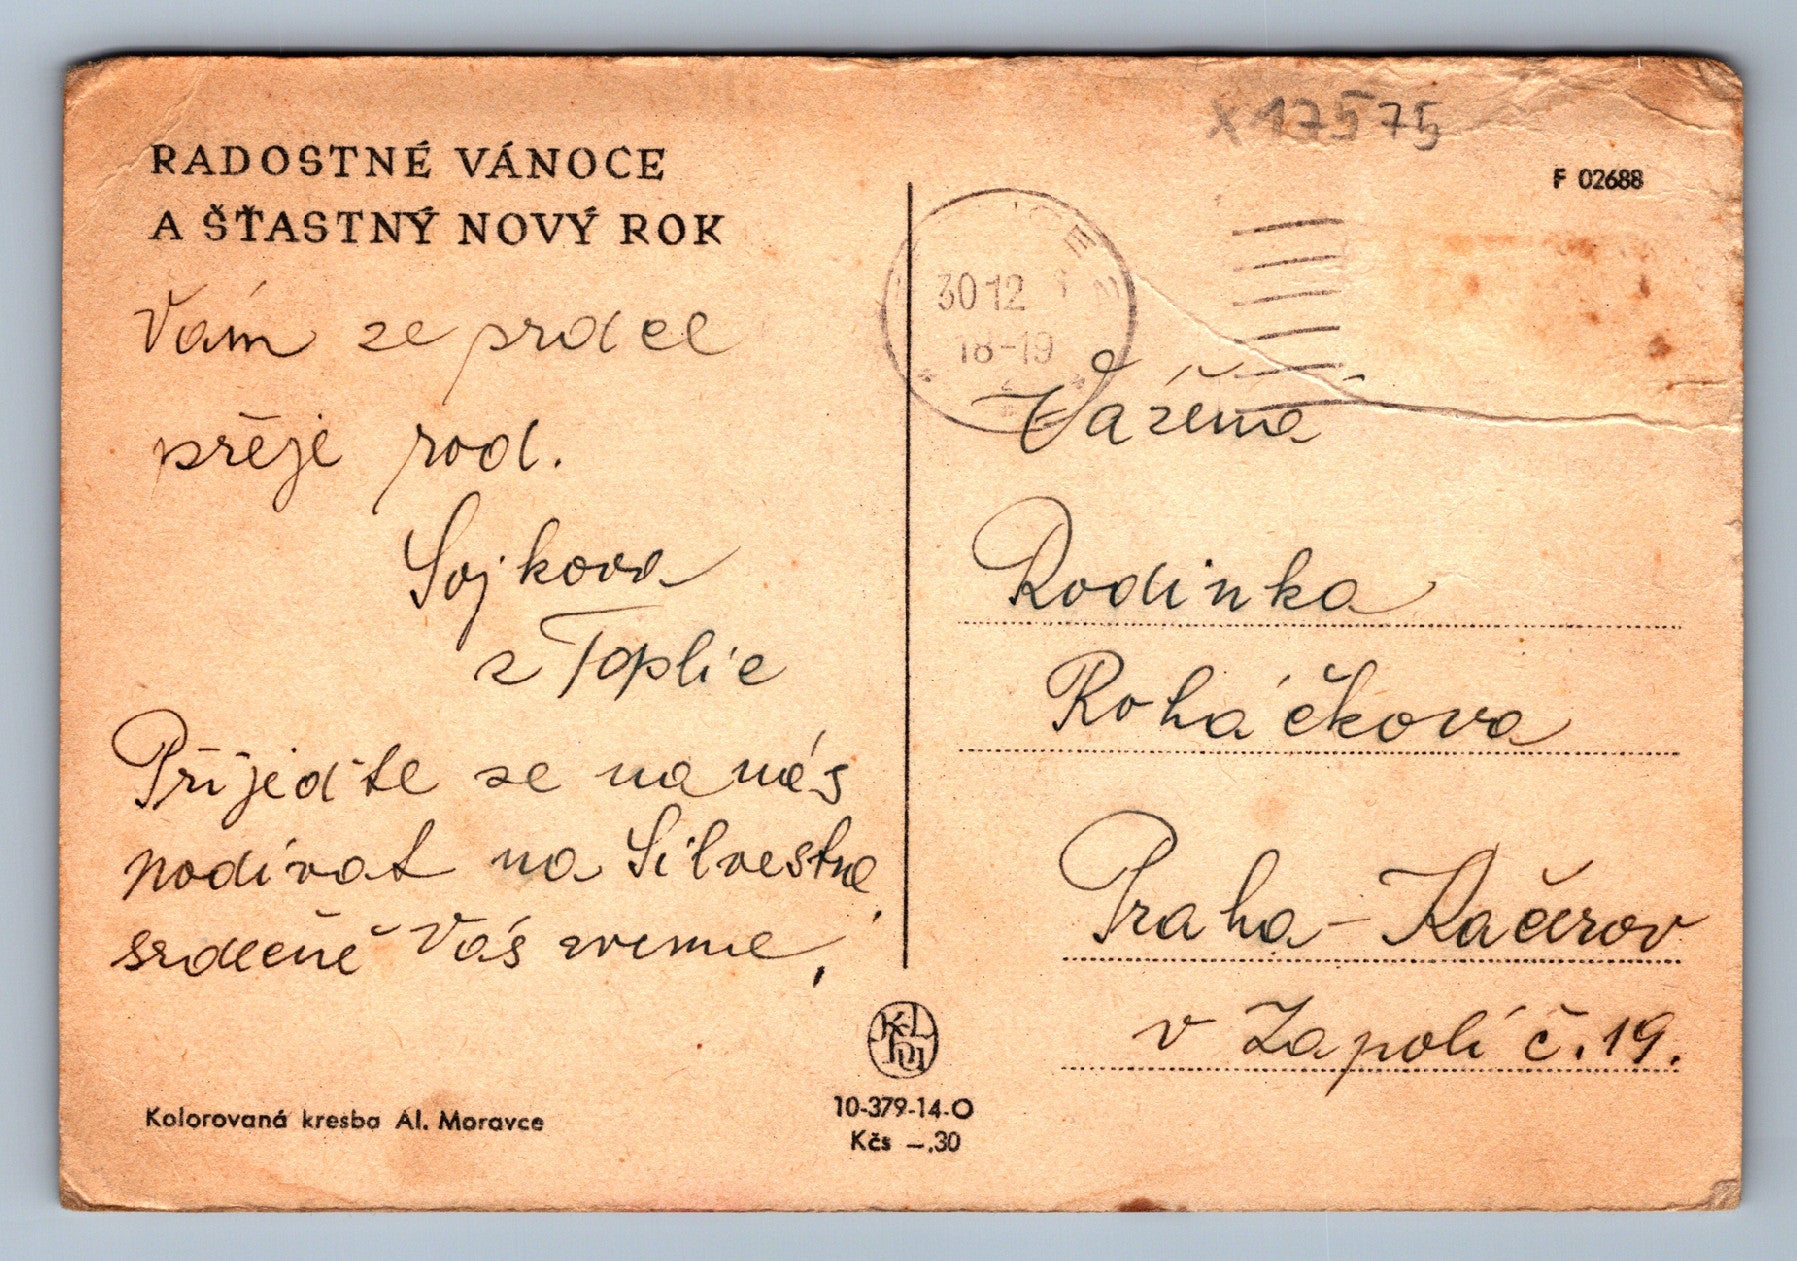 X 17575
RADOSTNÉ VÁNOCE
A ŠŤASTNÝ NOVÝ ROK
F 02688
30 12
18-19
Vám ze srdce
přeje rod.
Sojkova
z Teplic
Přijeďte se na nás
podívat na Silvestra,
srdečně Vás zveme,
Vážená
Rodinka
Roháčkova
Praha - Kačerov
v Zápolí č. 19.
Kolorovaná kresba Al. Moravce
10-379-14-O
Kčs -.30